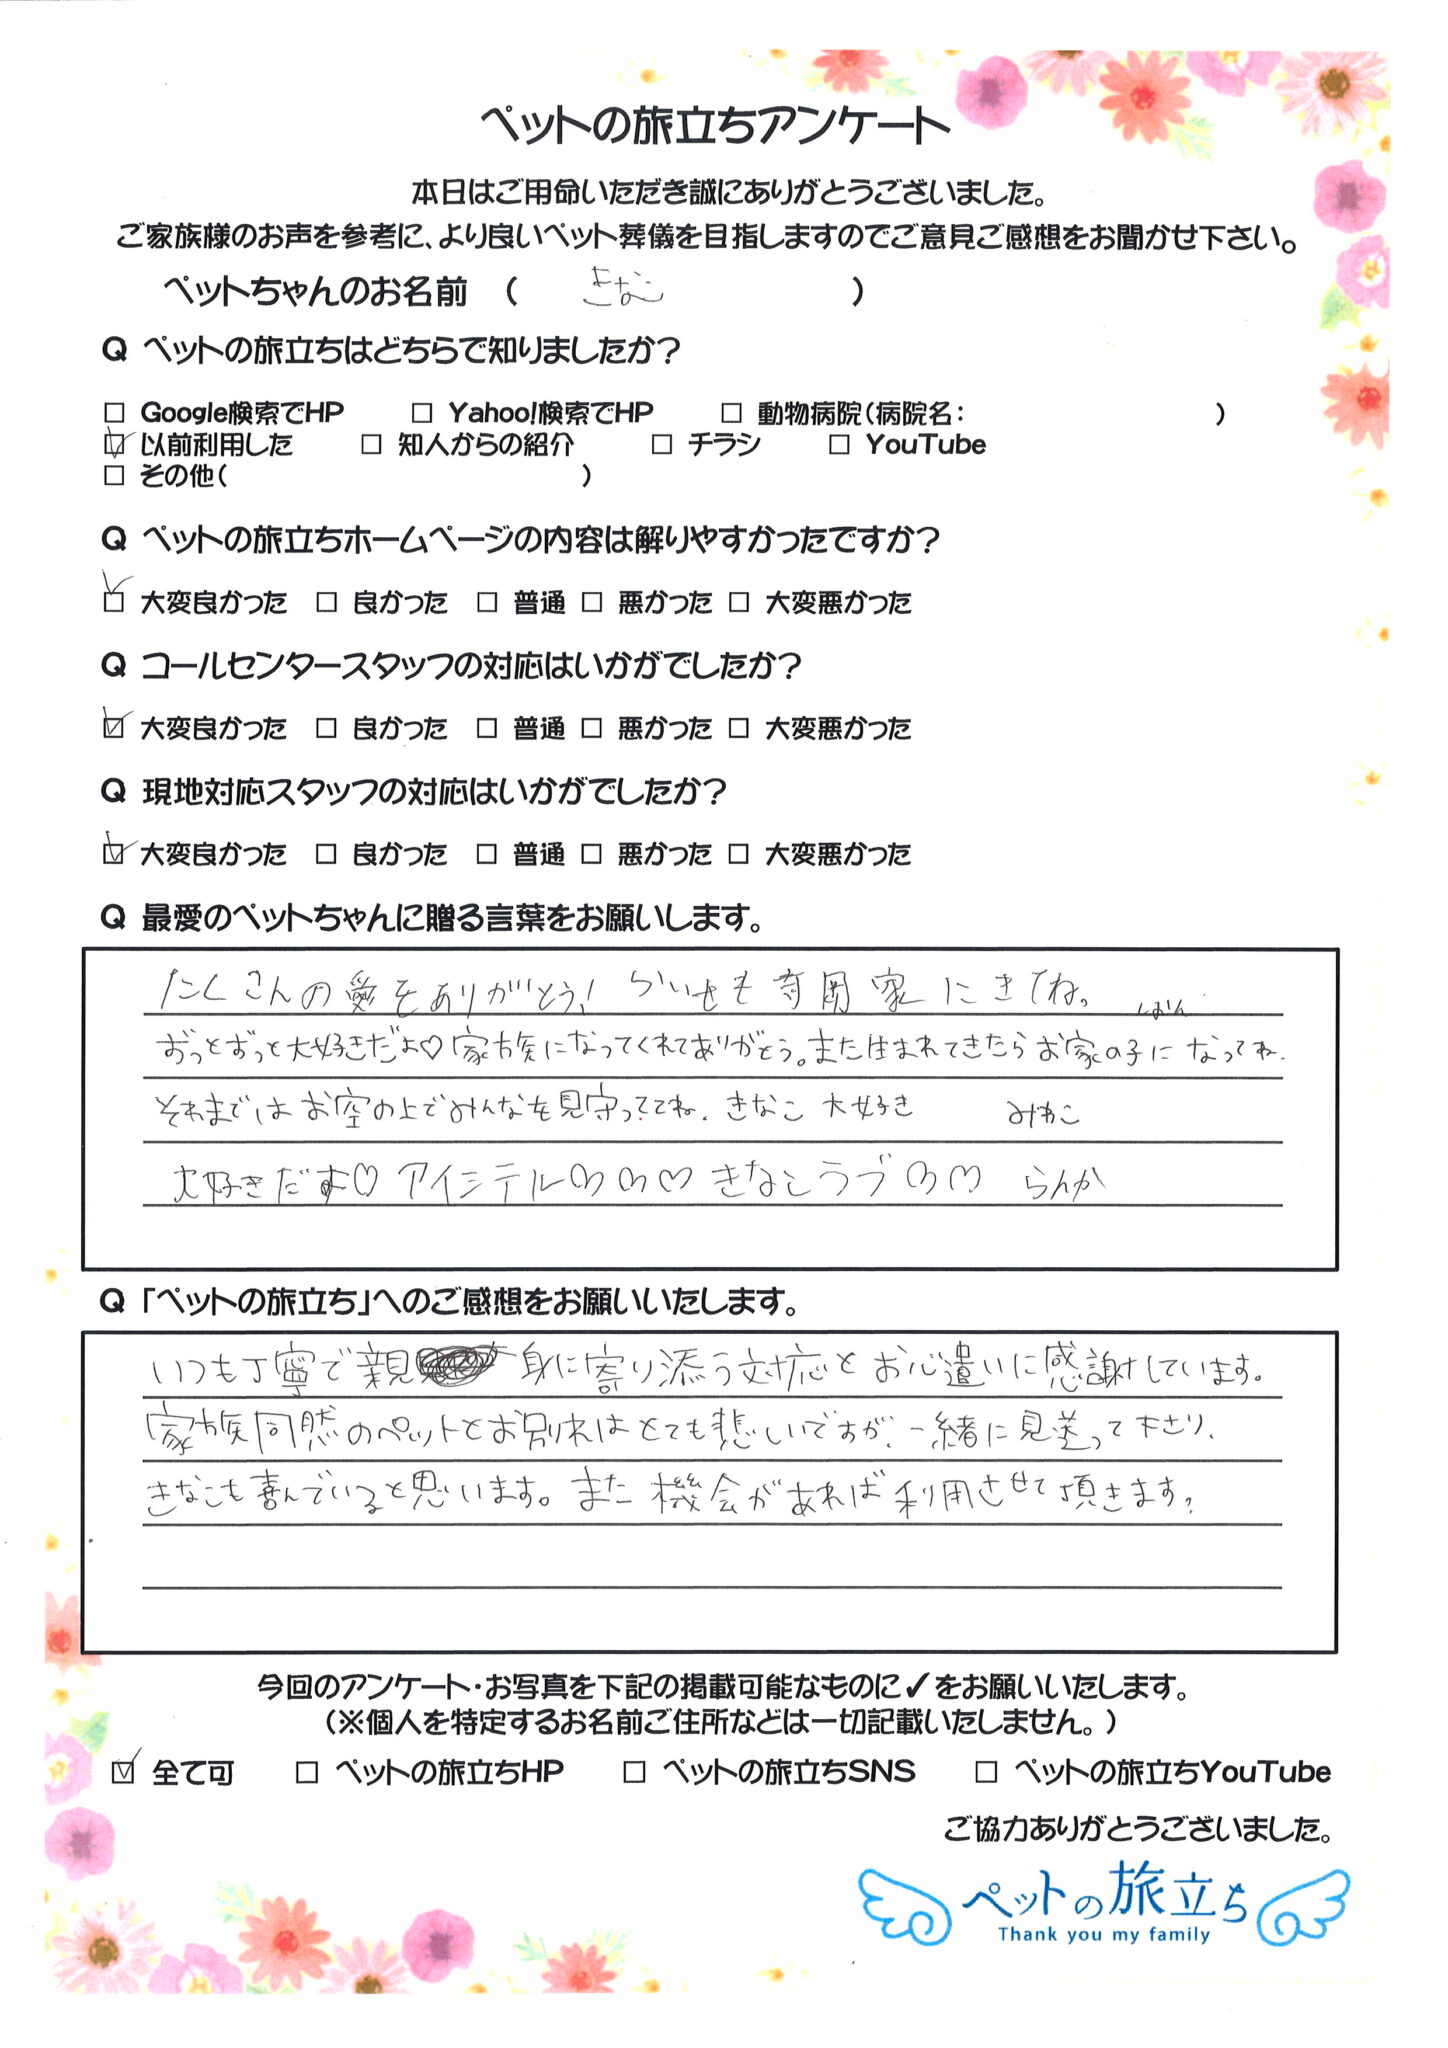 ペットの旅立ちアンケート
本日はご用命いただき誠にありがとうございました。
ご家族様のお声を参考に、より良いペット葬儀を目指しますのでご意見ご感想をお聞かせ下さい。
ペットちゃんのお名前 ( きなこ )
Q ペットの旅立ちはどちらで知りましたか?
□ Google検索でHP □ Yahoo!検索でHP □ 動物病院(病院名: )
☑ 以前利用した □ 知人からの紹介 □ チラシ □ YouTube
□ その他( )
Q ペットの旅立ちホームページの内容は解りやすかったですか?
☑ 大変良かった □ 良かった □ 普通 □ 悪かった □ 大変悪かった
Q コールセンタースタッフの対応はいかがでしたか?
☑ 大変良かった □ 良かった □ 普通 □ 悪かった □ 大変悪かった
Q 現地対応スタッフの対応はいかがでしたか?
☑ 大変良かった □ 良かった □ 普通 □ 悪かった □ 大変悪かった
Q 最愛のペットちゃんに贈る言葉をお願いします。
たくさんの愛をありがとう! らいせも寺岡家にきてね。 しおん
ずっとずっと大好きだよ♡家族になってくれてありがとう。また生まれてきたらお家の子になってね.
それまではお空の上でみんなを見守っててね. きなこ 大好き みわこ
大好きだよ♡ アイシテル♡♡♡ きなこラブ♡♡ らんか
Q 「ペットの旅立ち」へのご感想をお願いいたします。
いつも丁寧で親身に寄り添う対応とお心遣いに感謝しています。
家族同然のペットとお別れはとても悲しいですが、一緒に見送って下さり、
きなこも喜んでいると思います。また機会があれば利用させて頂きます。
今回のアンケート・お写真を下記の掲載可能なものに✓をお願いいたします。
(※個人を特定するお名前ご住所などは一切記載いたしません。)
☑ 全て可 □ ペットの旅立ちHP □ ペットの旅立ちSNS □ ペットの旅立ちYouTube
ご協力ありがとうございました。
ペットの旅立ち
Thank you my family